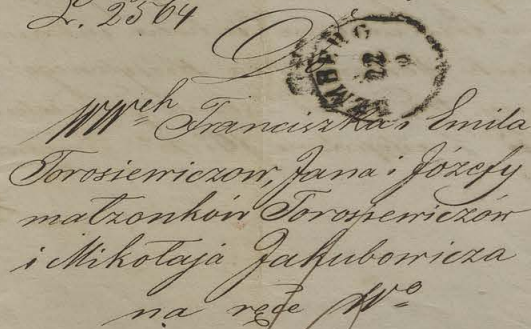 L. 2564
Do
LEMBERG
22
WWch Franciszka i Emila
Torosiewiczow, Jana i Józefy
małżonków Torosiewiczów
i Mikołaja Jakubowicza
na ręce Wo